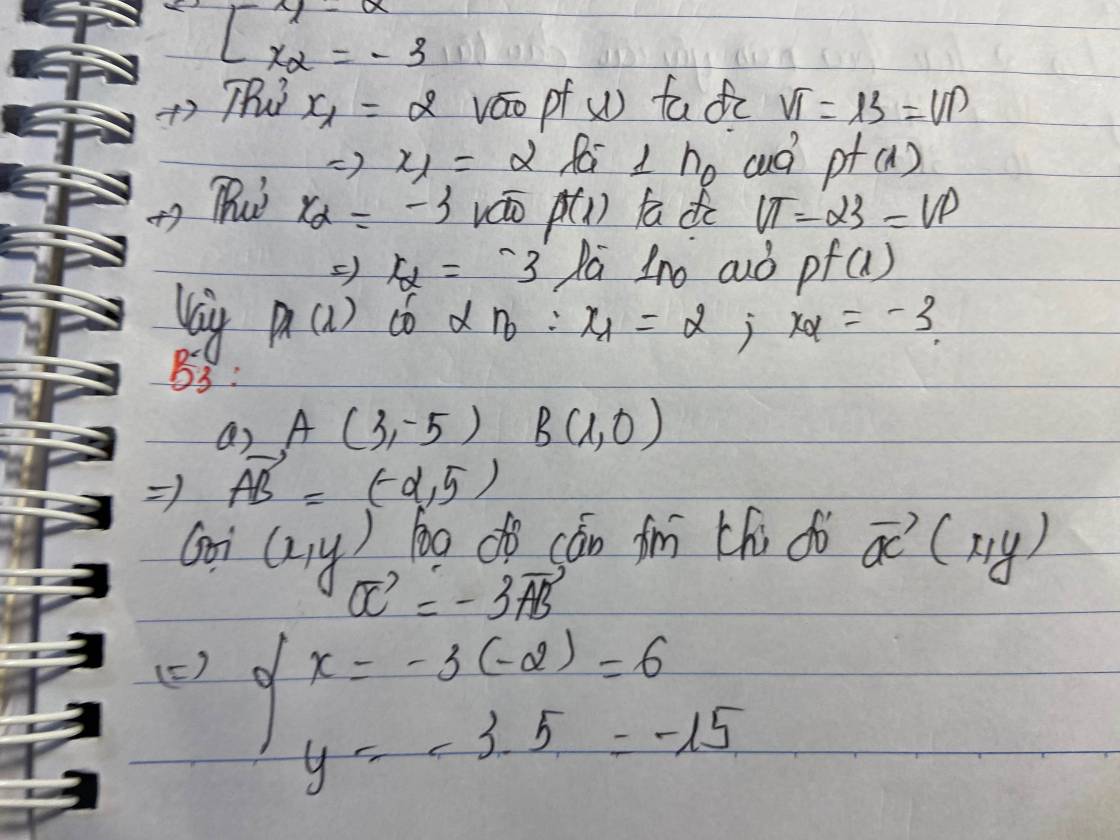 x₁ = 2
x₂ = -3
+) Thử x₁ = 2 vào pt (1) ta đc VT = 13 = VP
=) x₁ = 2 là 1 n₀ cuả pt (1)
+) Thử x₂ = -3 vào pt(1) ta đc VT = 23 = VP
=) x₂ = -3 là 1n₀ cuả pt (1)
Vậy pt (1) có 2 n₀ : x₁ = 2 ; x₂ = -3.
B3 :
a) A (3,-5) B(1,0)
=) \overrightarrow{AB} = (-2,5)
Gọi (x,y) toạ độ cần tìm khi đó \overrightarrow{OC} (x,y)
\overrightarrow{OC} = -3\overrightarrow{AB}
(=) { x = -3(-2) = 6
y = -3.5 = -15